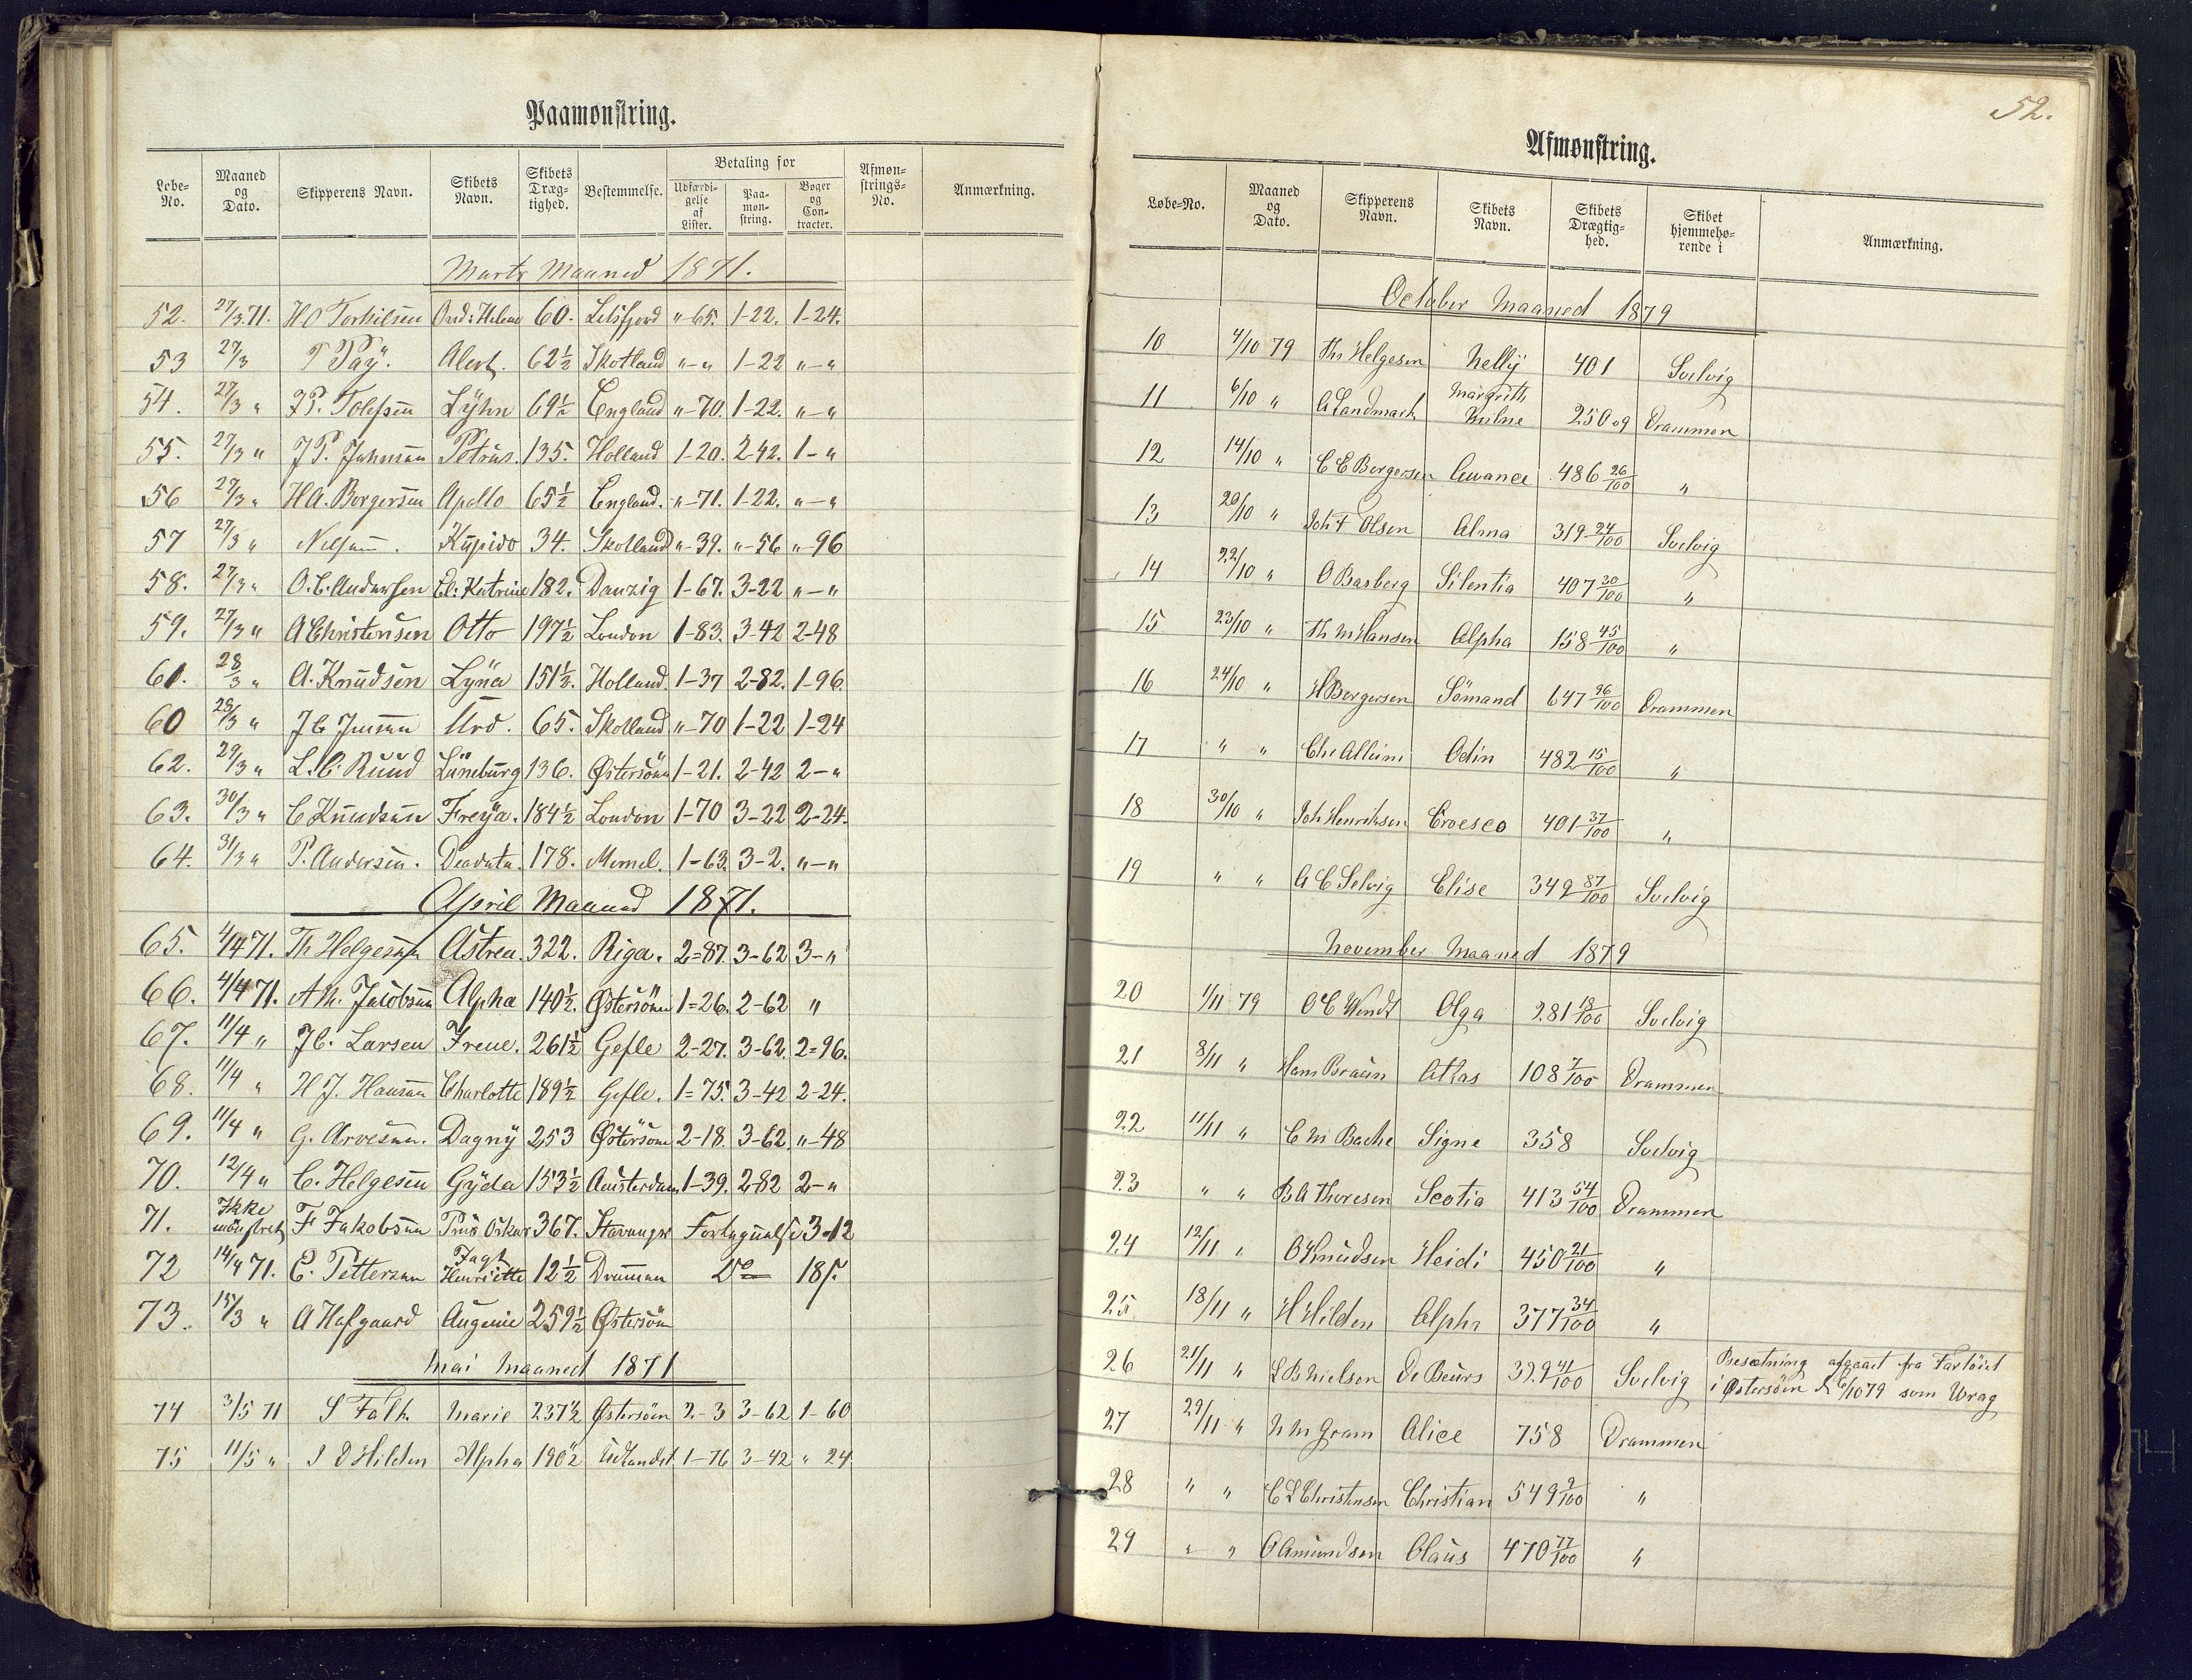 Paamønstring.
Løbe-No. Maaned og Dato. Skipperens Navn. Skibets Navn. Skibets Dræg-tighed. Bestemmelse. Betaling for Udfærdi-gelse af Lister. Paa-møn-string. Bøger og Con-tracter. Afmøn-strings-No. Anmærkning.
Marts Maaned 1871.
52. 27/3 71. H O Torkilsen 60. " 65. 1-22. 1-24.
53 27/3 T Paÿ. Alert. 62½ Skotland "-" 1-22 "-"
54. 27/3 " J P. Tolefsen Lÿhn 69½ England "-70. 1-22. "-"
55. 27/3 " J P. Petrus. 135. Holland 1-20. 2-42. 1-"
56 27/3 " H A. Borgersen Apollo 65½ England. "-71. 1-22. "-"
57 27/3 " Kupido 34. Skotland "-39. "-56 "-96
58. 27/3 " O. C. Andersen El: Katrine 182. Danzig 1-67. 3-22 "-"
59. 27/3 " A Christensen Otto 197½ London 1-83. 3-42 2-48
61. 28/3 " A. Knudsen Lÿna 151½. Holland. 1-37 2-82. 1-96.
60 28/3 " J C Jensen Urd. 65. Skotland "-70 1-22 1-24
62. 29/3 " L. C. Ruud Lüneburg 136. Østersöen 1-21. 2-42 2-"
63. 30/3 " C Knudsen Freÿa. 184½ London 1-70 3-22 2-24.
64. 31/3 " P. Andersen. Deodata. 178. Memel. 1-63. 3-2. "-"
April Maaned 1871.
65. 4/4 71. Th Helgesen Astrea. 322. Riga. 2=87. 3-62 3-"
66. 4/4 71. A M. Jacobsen Alpha 140½. Østersöen 1=26. 2-62 "
67. 11/4 " J C. Larsen Irene. 261½ Gefle 2-27. 3-62. 2=96.
68. 11/4 " H J. Hansen Charlotte 189½ Gefle. 1=75. 3-42 2-24.
69. 11/4 " G. Arvesen. Dagnÿ 253 Østersöen 2-18. 3-62. "-48
70. 12/4 " C. Helgesen Gÿda 153½ Amsterdam 1-39. 2-82 2-"
71. Ikke mönstret F Jakobsen Prins Oskar 367. Stavanger 3-12
72 14/4 71. E. Pettersen Jagt Henriette 12½ Drammen Do 18
73. 15/3 " A Hafgaard Augenie 259½ Østersöen
Mai Maaned 1871
74 3/5 71 S Falk Marie 237½ Østersöen 2-3 3-62 1-60
75 11/5 " J O Hilden Alpha 190½ Udlandet 1-76 3-42 " 24
52.
Afmønstring.
Løbe-No. Maaned og Dato. Skipperens Navn. Skibets Navn. Skibets Drægtig-hed. Skibet hjemmehø-rende i Anmærkning.
October Maaned 1879
10 4/10 79 Th Helgesen Nellÿ 401 Svelvig
11 6/10 " A Landmark Margrith 250 09 Drammen
12 14/10 " C E Borgersen 486 26/100 "
13 20/10 " Joh F Olsen Alma 319 24/100 Svelvig
14 22/10 " O Basberg Silentia 407 30/100 "
15 23/10 " Th M Hansen Alpha 158 45/100 "
16 24/10 " H Borgersen Sömand 647 96/100 Drammen
17 " " Chr Odin 482 15/100 "
18 30/10 " Joh Henriksen Croesco 401 37/100 "
19 " " A C Selvig Elise 349 87/100 Svelvig
November Maaned 1879
20 1/11 79 O C Wendt Olga 281 18/100 Svelvig
21 8/11 " Hans Braun Atlas 108 7/100 Drammen
22 11/11 " C M Bache Signe 358 Svelvig
23 " " B A Thoresen Scotia 413 54/100 Drammen
24 12/11 " O Knudsen Heidi 450 21/100 "
25 18/11 " H Hilden Alpha 377 34/100 "
26 21/11 " L B Nielsen De Beurs 329 41/100 Svelvig Besætning afgaaet fra Fartöiet i Østersöen d. 6/10 79 som Vrag
27 29/11 " N M Gram Alice 758 Drammen
28 " " C L Christensen Christian 549 9/100 "
29 " " O Amundsen Olaus 470 77/100 "